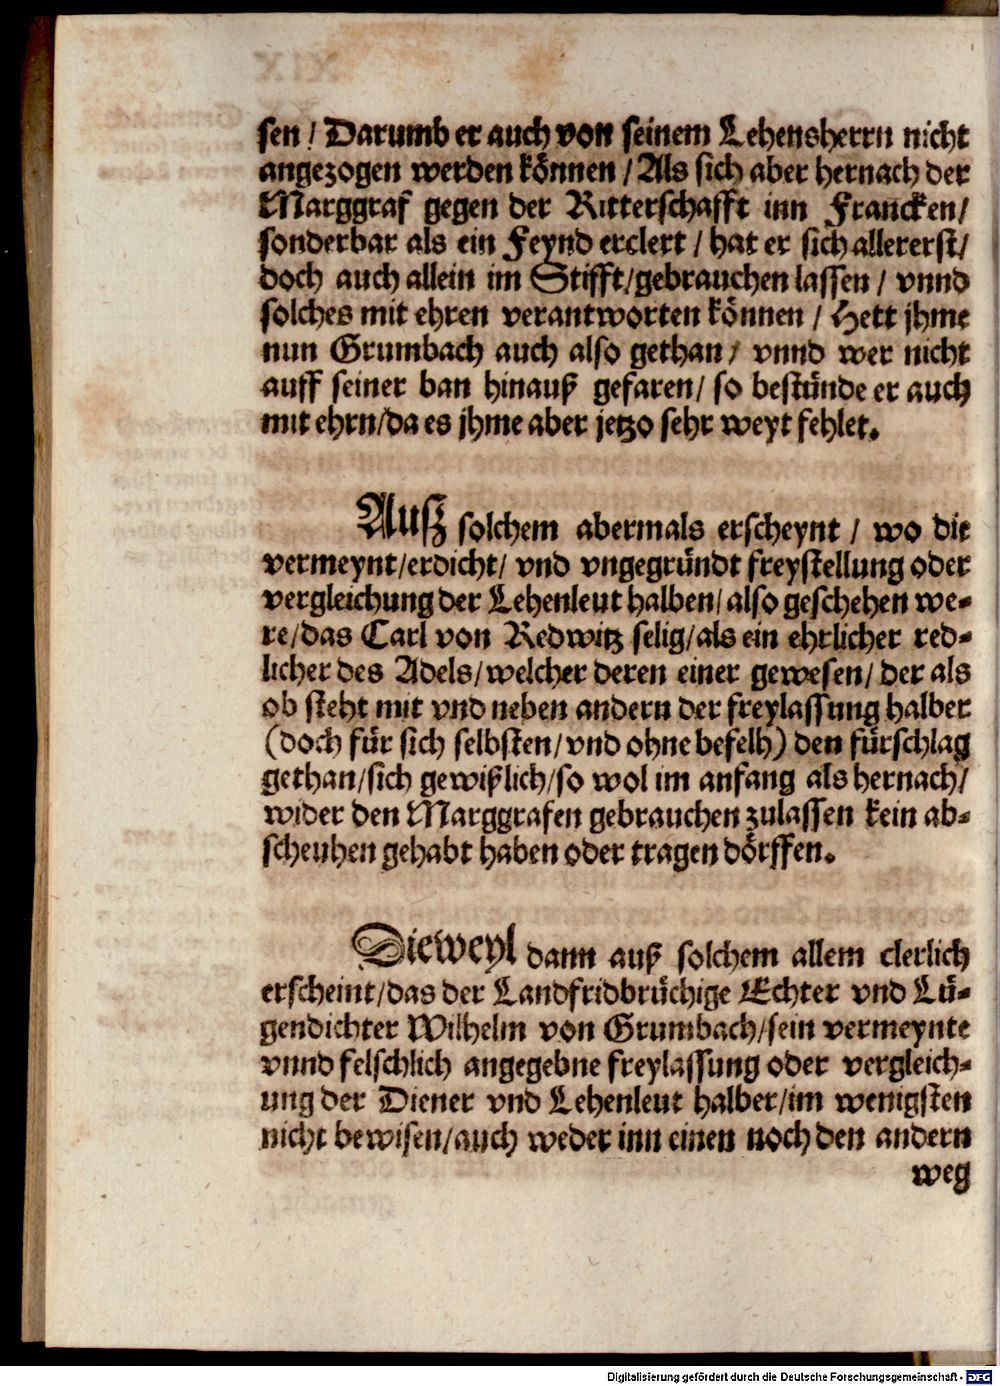 sen / Darumb er auch von seinem Lehensherrn nicht
angezogen werden können / Als sich aber hernach der
Marggraf gegen der Ritterschafft inn Francken/
sonderbar als ein Feynd erclert / hat er sich allererst/
doch auch allein im Stifft/gebrauchen lassen / vnnd
solches mit ehren verantworten können / Hett jhme
nun Grumbach auch also gethan/ vnnd wer nicht
auff seiner ban hinauß gefaren/ so bestünde er auch
mit ehrn/da es jhme aber jetzo sehr weyt fehlet.
Ausz solchem abermals erscheynt / wo die
vermeynt/erdicht/ vnd vngegründt freystellung oder
vergleichung der Lehenleut halben/ also geschehen we-
re/das Carl von Redwitz selig/als ein ehrlicher red-
licher des Adels/welcher deren einer gewesen/ der als
ob steht mit vnd neben andern der freylassung halber
(doch für sich selbsten/vnd ohne befelh) den fürschlag
gethan/sich gewißlich/so wol im anfang als hernach/
wider den Marggrafen gebrauchen zulassen kein ab-
scheuhen gehabt haben oder tragen dörffen.
Dieweyl dann auß solchem allem clerlich
erscheint/das der Landfridbrüchige Echter vnd Lü-
gendichter Wilhelm von Grumbach/sein vermeynte
vnnd felschlich angegebne freylassung oder vergleich-
ung der Diener vnd Lehenleut halber/im wenigsten
nicht bewisen/auch weder inn einen noch den andern
weg
Digitalisierung gefördert durch die Deutsche Forschungsgemeinschaft - DFG